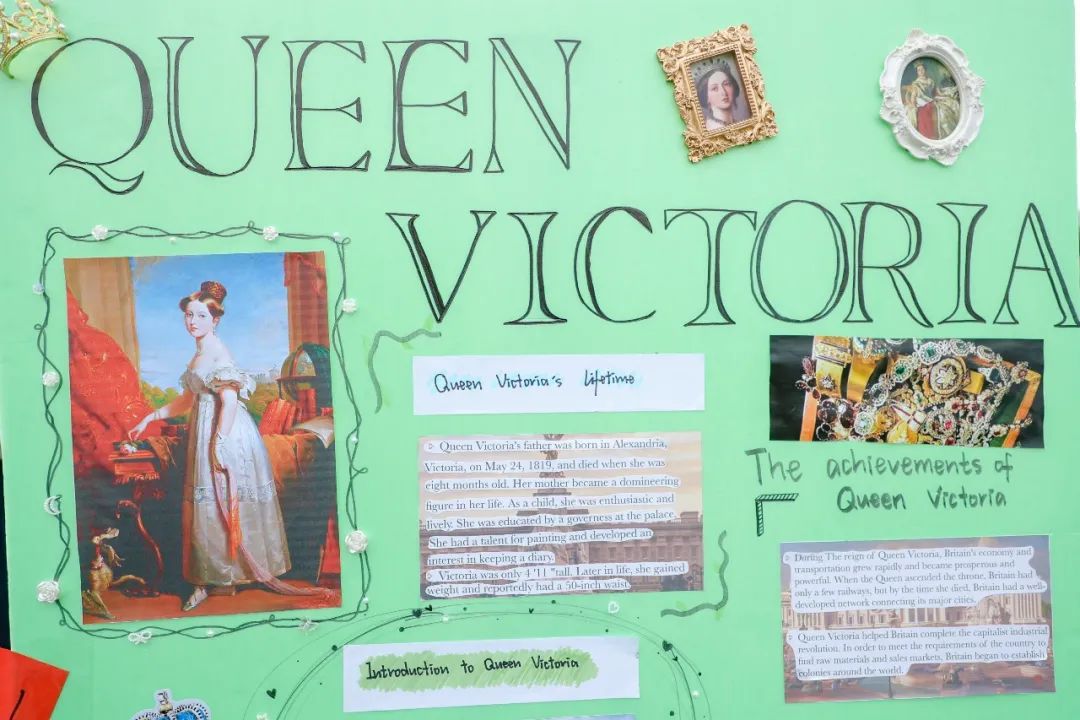 QUEEN
VICTORIA
Queen Victoria's lifetime
Queen Victoria's father was born in Alexandria,
Victoria, on May 24, 1819, and died when she was
eight months old. Her mother became a domineering
figure in her life. As a child, she was enthusiastic and
lively. She was educated by a governess at the palace.
She had a talent for painting and developed an
interest in keeping a diary.
Victoria was only 4 '11 "tall. Later in life, she gained
weight and reportedly had a 50-inch waist.
The achievements of
Queen Victoria
During The reign of Queen Victoria, Britain's economy and
transportation grew rapidly and became prosperous and
powerful. When the Queen ascended the throne, Britain had
only a few railways, but by the time she died, Britain had a well-
developed network connecting its major cities.
Queen Victoria helped Britain complete the capitalist industrial
revolution. In order to meet the requirements of the country to
find raw materials and sales markets, Britain began to establish
colonies around the world.
Introduction to Queen Victoria